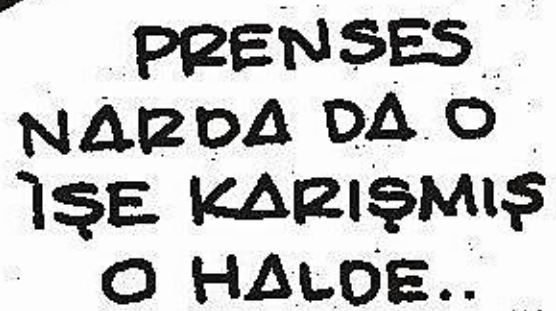 PRENSES
NARDA DA O
İŞE KARIŞMIŞ
O HALDE..